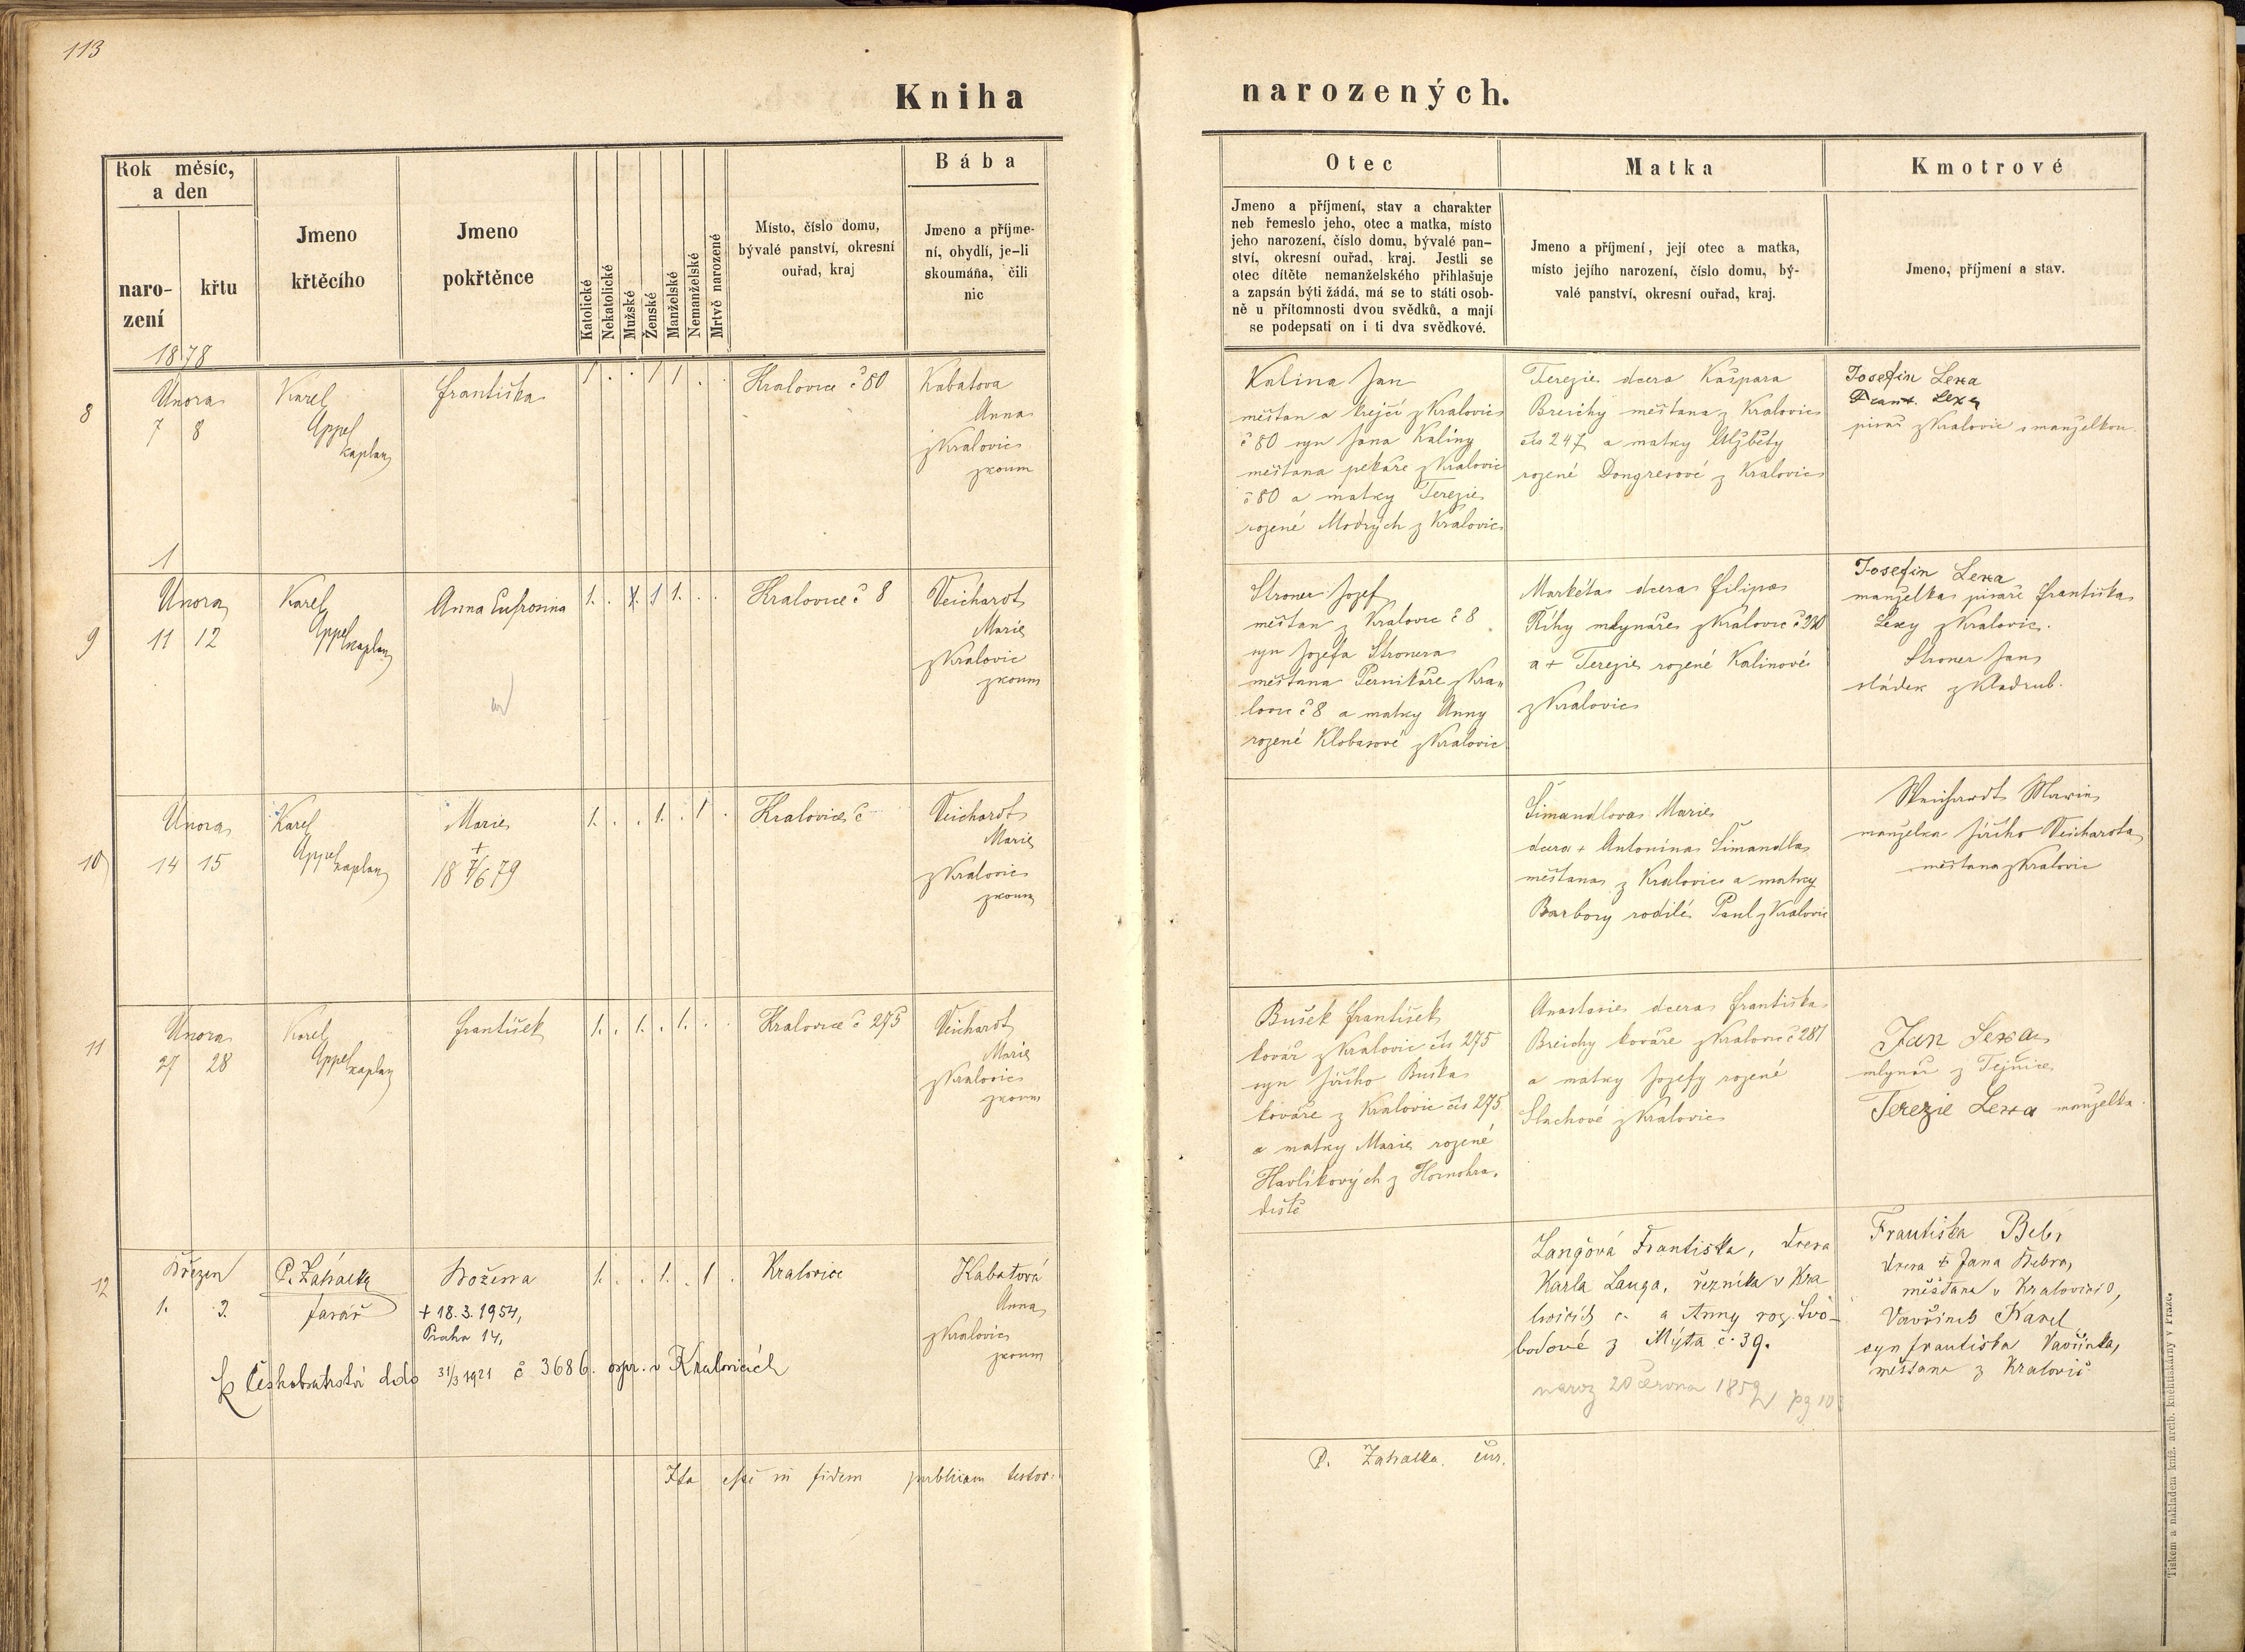 113
Kniha
narozených.
Rok měsíc,
a den
naro-
zení
křtu
Jmeno
křtěcího
Jmeno
pokřtěnce
Katolické
Nekatolické
Mužské
Ženské
Manželské
Nemanželské
Mrtvě narozené
Místo, číslo domu,
bývalé panství, okresní
ouřad, kraj
Bába
Jmeno a příjme-
ní, obydlí, je-li
skoumáňa, čili
nic
Otec
Jmeno a příjmení, stav a charakter
neb řemeslo jeho, otec a matka, místo
jeho narození, číslo domu, bývalé pan-
ství, okresní ouřad, kraj. Jestli se
otec dítěte nemanželského přihlašuje
a zapsán býti žádá, má se to státi osob-
ně u přítomnosti dvou svědků, a mají
se podepsati on i ti dva svědkové.
Matka
Jmeno a příjmení, její otec a matka,
místo jejího narození, číslo domu, bý-
valé panství, okresní ouřad, kraj.
Kmotrové
Jmeno, příjmení a stav.
1878
8
Února
7 8
1
Karel
Appel
kaplan
Františka
1 . . 1 1 . .
Kralovice č 80
Kabatova
Anna
z Kralovic
zkoum
Kalina Jan
měštan a krejčí z Kralovic
č 80 syn Jana Kaliny
měštana pekaře z Kralovic
č 80 a matky Terezie
rozené Modrých z Kralovic
Terezie dcera Kašpara
Breichy měštana z Kralovic
čís 247 a matky Alžběty
rozené Dongresové z Kralovic
Josefin Lexa
Frant. Lexa
písař z Kralovic s manželkou
9
Února
11 12
Karel
Appel kaplan
Anna Eufrosina
1. . 1. 1 1. . .
Kralovice č 8
Veichardt
Marie
z Kralovic
zkoum
Stroner Jozef
měštan z Kralovic č 8
syn Jozefa Stronera
měštana Pernikáře z Kra„
lovic č 8 a matky Anny
rozené Klobasové z Kralovic
Markéta dcera Filipa
Říhy mlynáře z Kralovic č 230
a + Terezie rozené Kalinové
z Kralovic
Josefin Lexa
manželka písaře Františka
Lexy z Kralovic.
Stroner Jan
sládek z Kladrub.
10
Února
14 15
Karel
Appel kaplan
Marie
+
18 7/6 79
1. . . 1. . 1 .
Kralovice č
Veichardt
Marie
z Kralovic
zkoum
Šimandlova Marie
dcera + Antonína Šimandla
měštana z Kralovic a matky
Barbory rodilé Paul z Kralovic
Weichardt Marie
manželka Jiřího Veichardta
měštana z Kralovic
11
Února
27 28
Karel
Appel kaplan
František
1. . 1. . 1. . .
Kralovice č 275
Veichardt
Marie
z Kralovic
zkoum
Bušek František
kovář z Kralovic čís 275
syn Jiřího Buška
kováře z Kralovic čís 275
a matky Marie rozené
Havlíkových z Hornohra„
diště
Anastasie dcera Františka
Breichy kováře z Kralovic č 281
a matky Jozefy rozené
Slachové z Kralovic
Jan Lexa
mlynář z Tejnice
Terezie Lexa manželka
12
Březen
1. 3.
P. Zahalka
farář
Božena
+ 18.3.1954,
Praha 14,
1. . . 1. . 1 .
Kralovice
Kabatová
Anna
z Kralovic
zkoum
Českobratrství ddo 31/3 1921 č 3686. ospr. v Kralovicích
Langová Františka, dcera
Karla Langa, řezníka v Kra
lovicích č. a Anny roz. Svo-
bodové z Mýta č. 39.
naroz 20 června 1859 pg 10
Františka Bebr
dcera + Jana Bebra,
měšťana v Kralovicích,
Vavřinec Karel
syn Františka Vavřinka,
měšťana z Kralovic
Ita esse in fidem publicam testor.
P. Zahalka. cur.
Tiskem a nákladem kníž. arcib. kněhtiskárny v Praze.